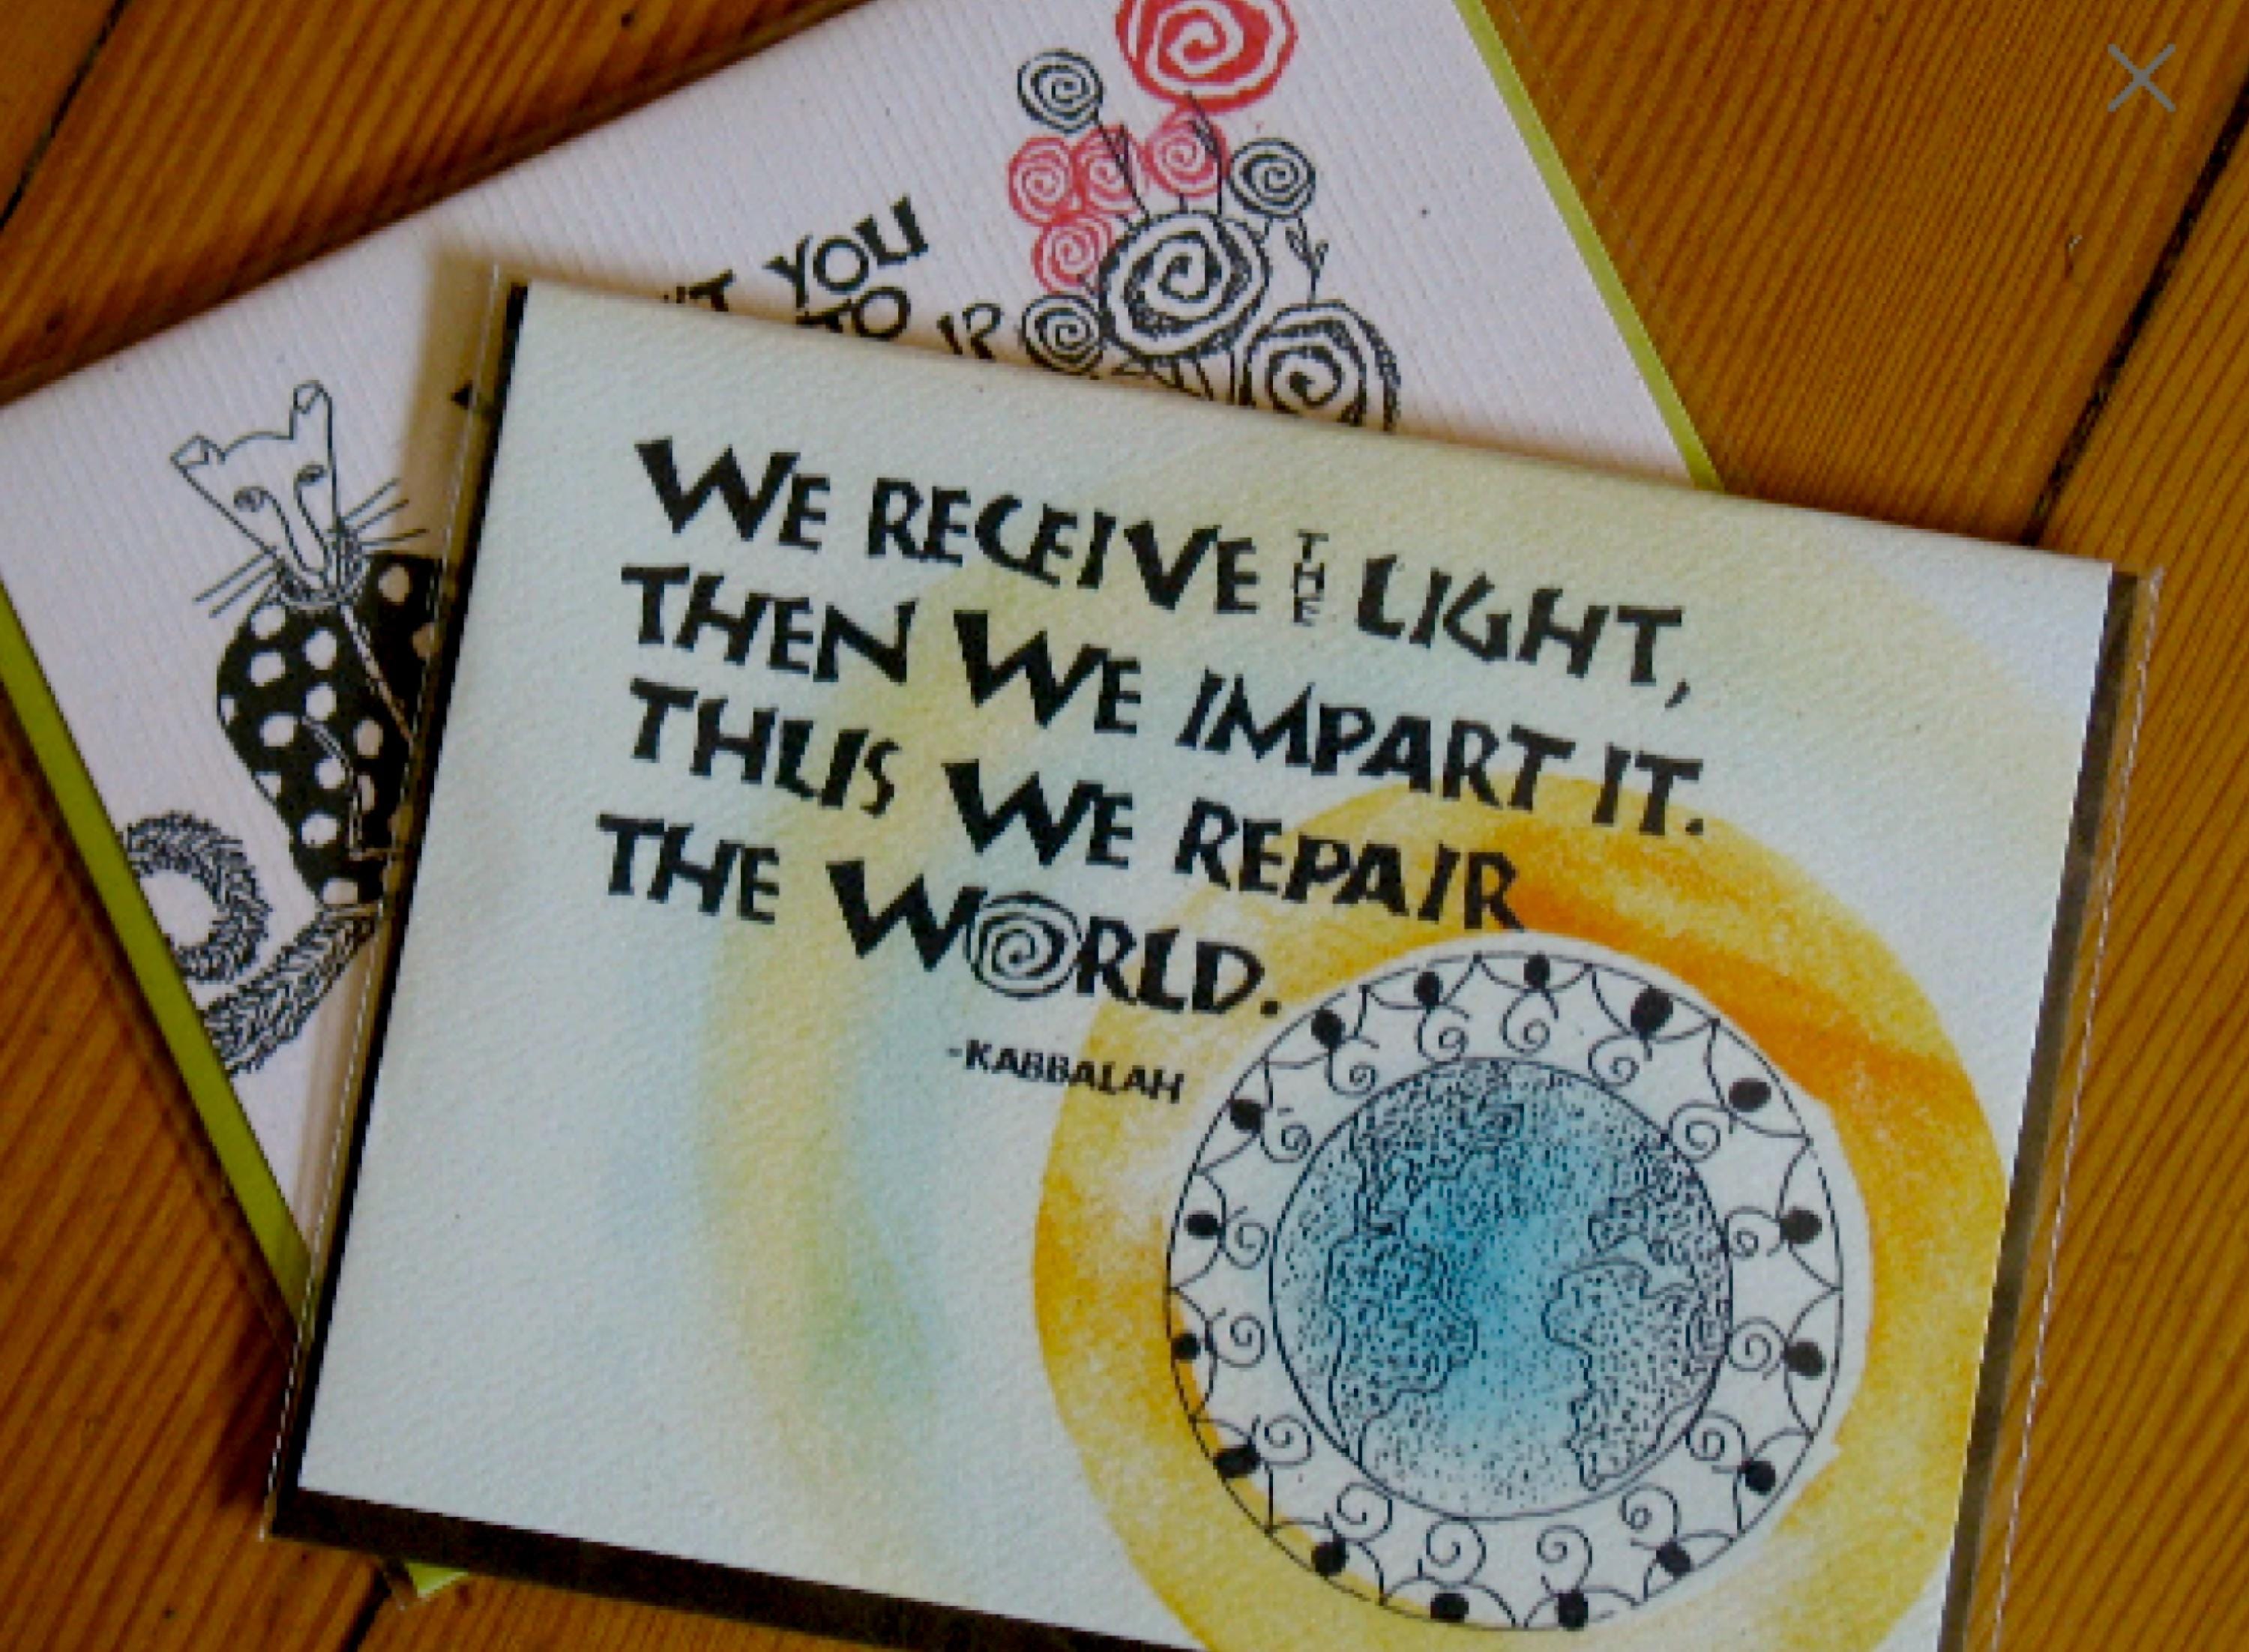 YOU
TO
WE RECEIVE THE LIGHT,
THEN WE IMPART IT.
THUS WE REPAIR
THE WORLD.
-KABBALAH